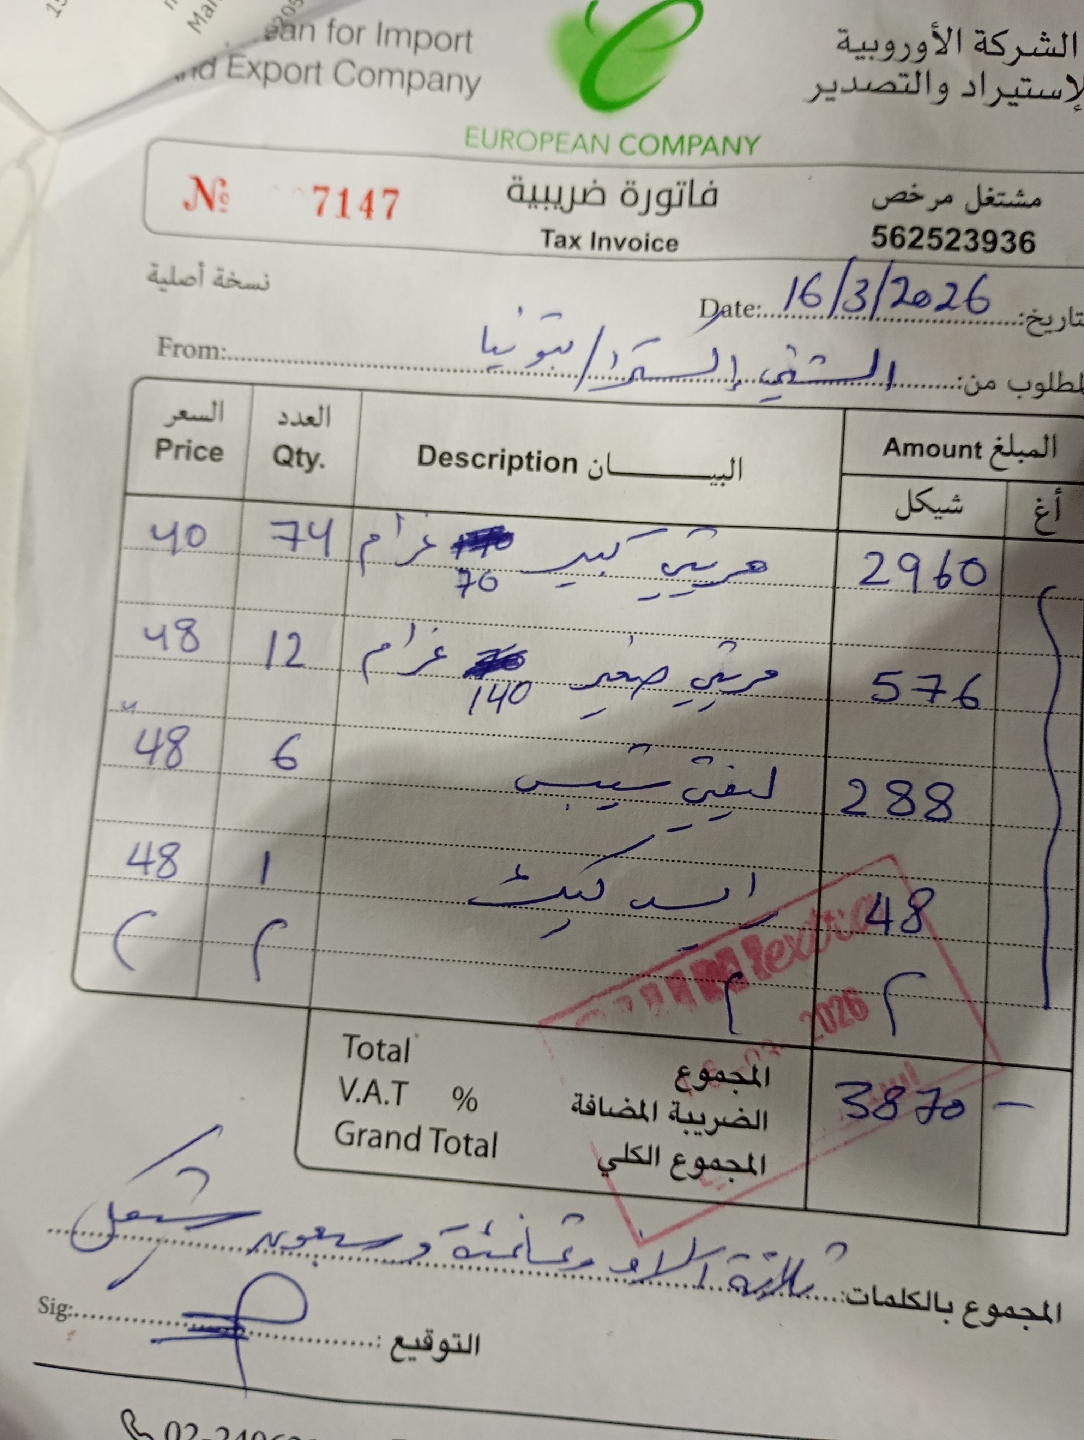 ean for Import
and Export Company
الشركة الأوروبية
لإستيراد والتصدير
EUROPEAN COMPANY
№ 7147
فاتورة ضريبية
Tax Invoice
مشتغل مرخص
562523936
نسخة أصلية
Date: 16/3/2026 تاريخ:
From: الشني إكسترا / بتونيا لمطلوب من:
السعر Price
العدد Qty.
Description البيــــــان
Amount المبلغ
شيكل أغ
40 74 كبير 70 غرام 2960
48 12 صغير 140 غرام 576
48 6 شيبس 288
48 1 48
extra
2026
Total المجموع
V.A.T % الضريبة المضافة
Grand Total المجموع الكلي
3870 —
المجموع بالكلمات: ثلاثة آلاف وثمانمئة وسبعون شيكل
Sig: التوقيع: